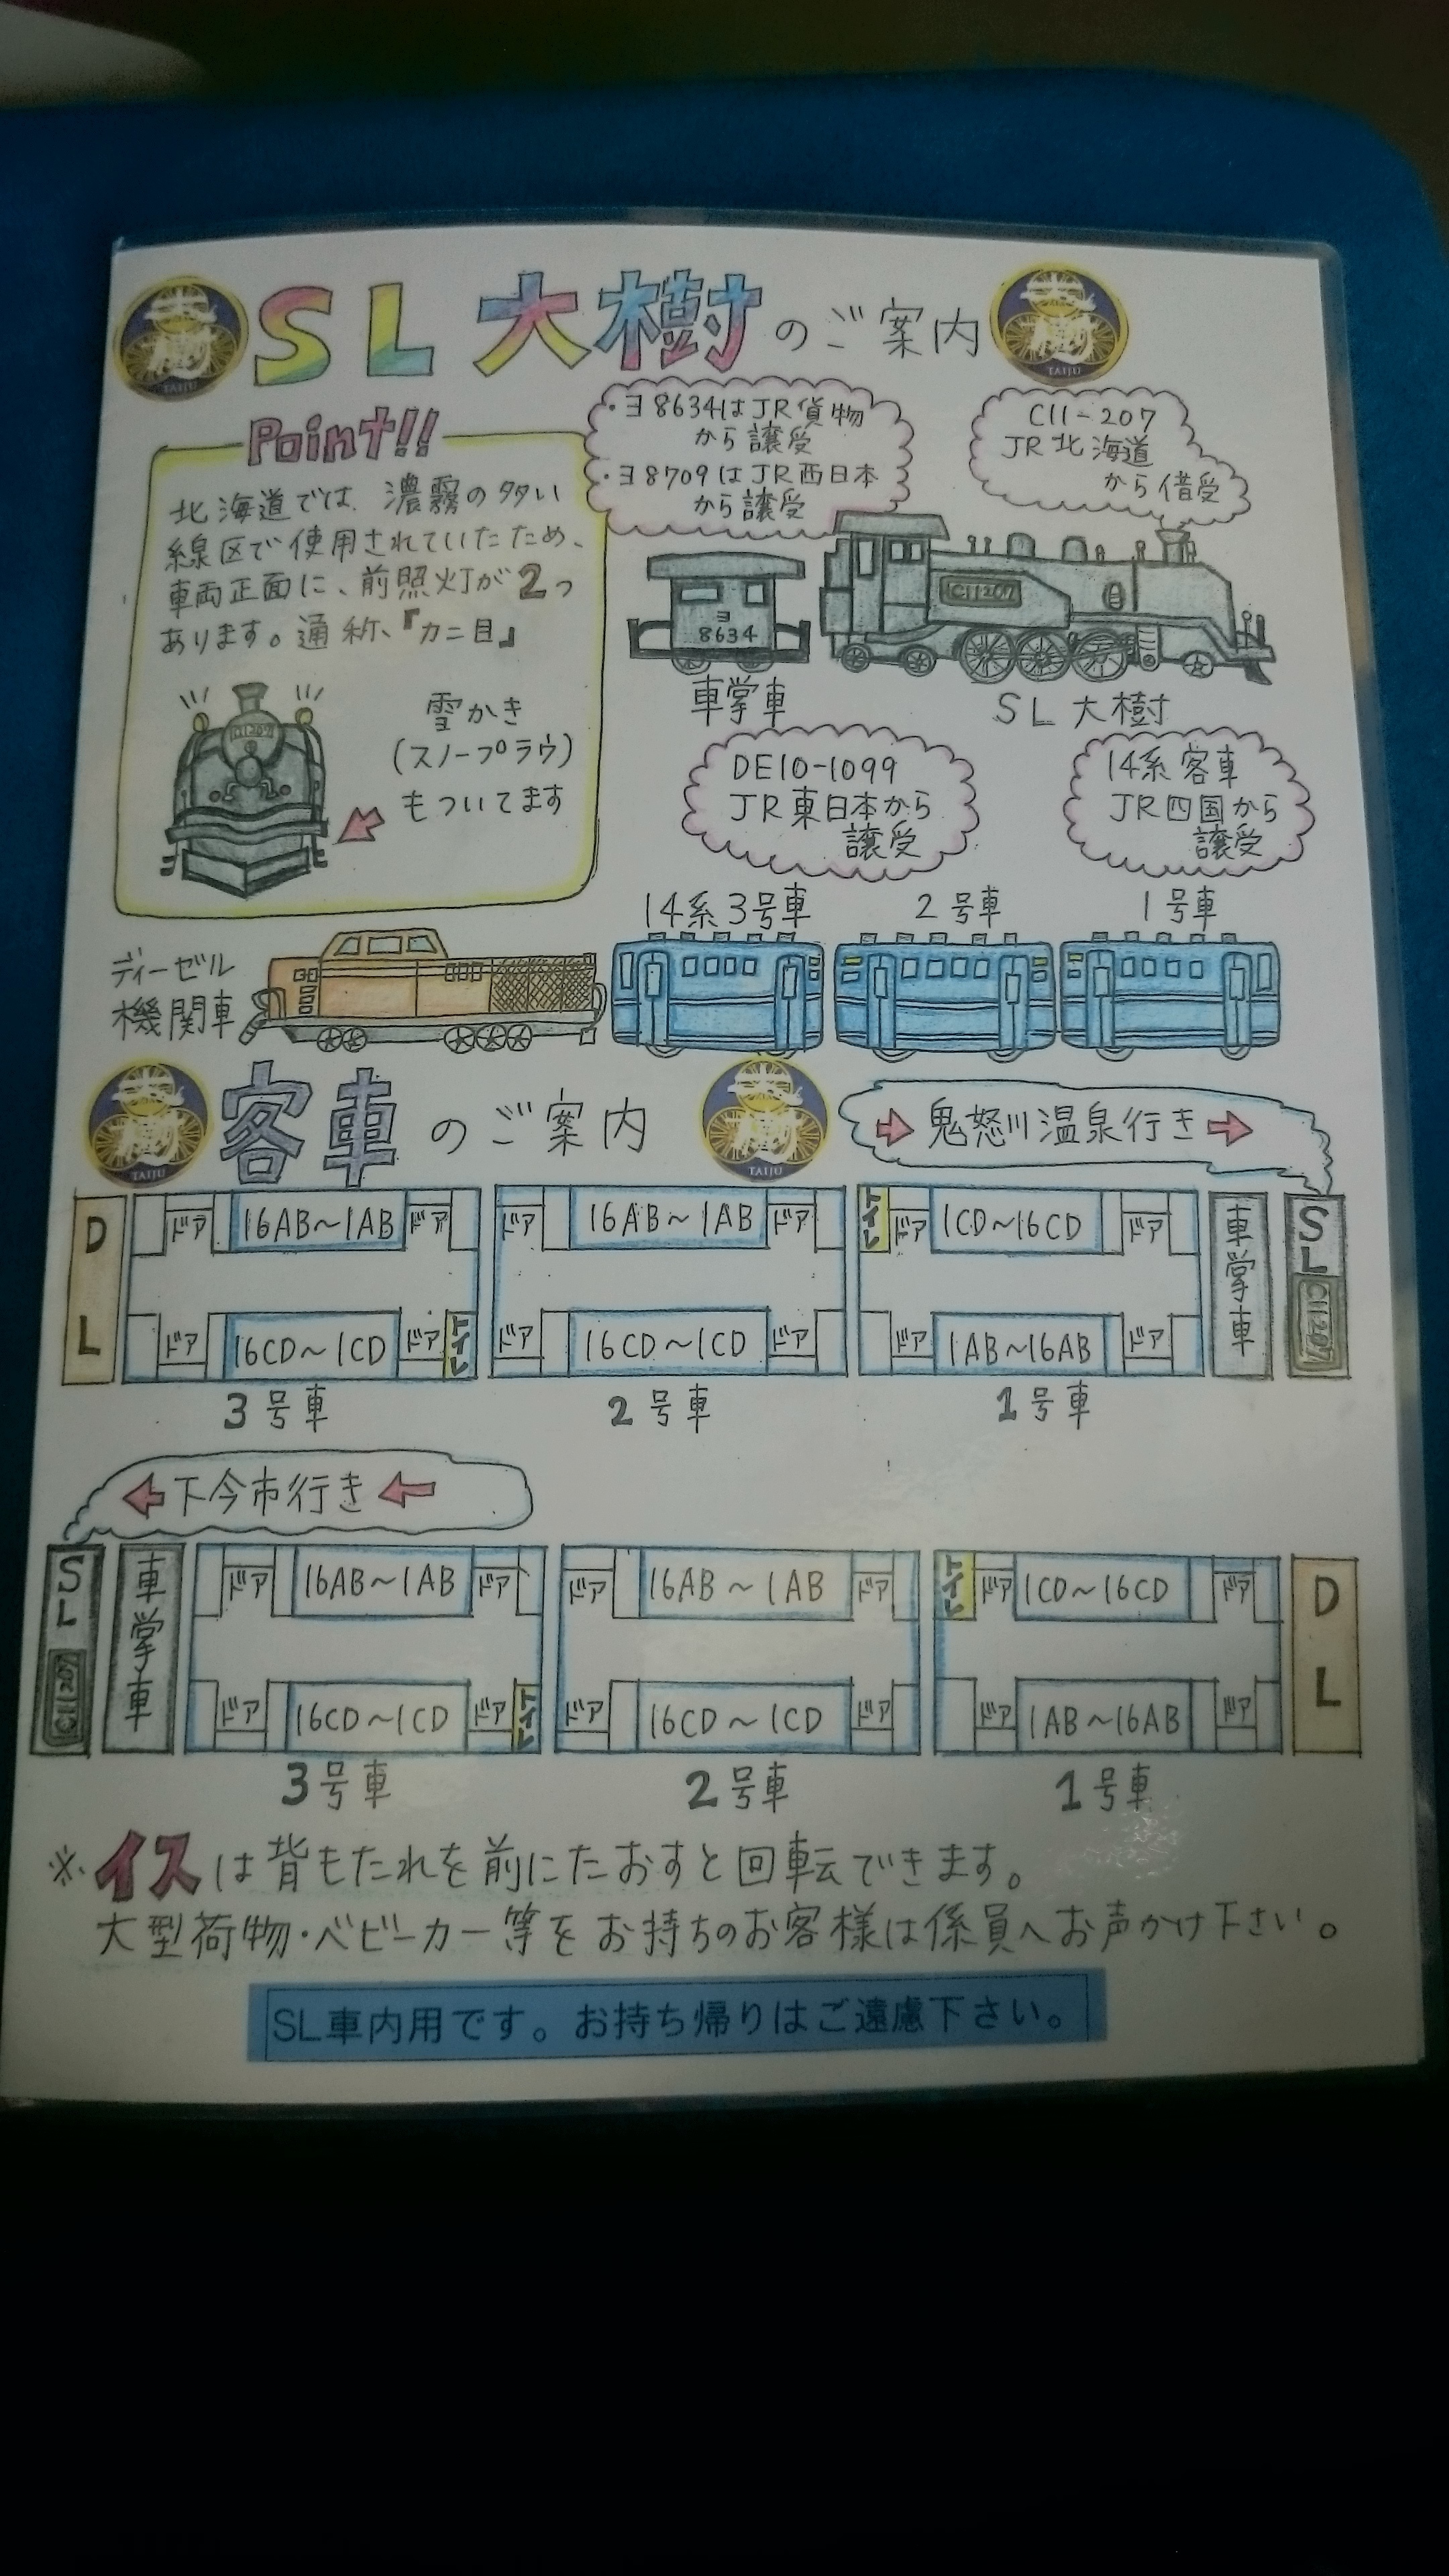 SL大樹のご案内
TAIJU
TAIJU
Point!!
北海道では、濃霧の多い
線区で使用されていたため、
車両正面に、前照灯が2つ
あります。通称、『カニ目』
C11207
雪かき
(スノープラウ)
もついてます
・ヨ8634はJR貨物
から譲受
・ヨ8709はJR西日本
から譲受
C11-207
JR北海道
から借受
ヨ
8634
C11207
車掌車
SL大樹
DE10-1099
JR東日本から
譲受
14系客車
JR四国から
譲受
ディーゼル
機関車
14系3号車 2号車 1号車
客車のご案内
TAIJU
TAIJU
鬼怒川温泉行き
DL
ドア 16AB〜1AB ドア
ドア 16CD〜1CD ドア トイレ
3号車
ドア 16AB〜1AB ドア
ドア 16CD〜1CD ドア
2号車
トイレ ドア 1CD〜16CD ドア
ドア 1AB〜16AB ドア
1号車
車掌車
SL C11207
下今市行き
SL C11207
車掌車
ドア 16AB〜1AB ドア
ドア 16CD〜1CD ドア トイレ
3号車
ドア 16AB〜1AB ドア
ドア 16CD〜1CD ドア
2号車
トイレ ドア 1CD〜16CD ドア
ドア 1AB〜16AB ドア
1号車
DL
※イスは背もたれを前にたおすと回転できます。
大型荷物・ベビーカー等をお持ちのお客様は係員へお声かけ下さい。
SL車内用です。お持ち帰りはご遠慮下さい。